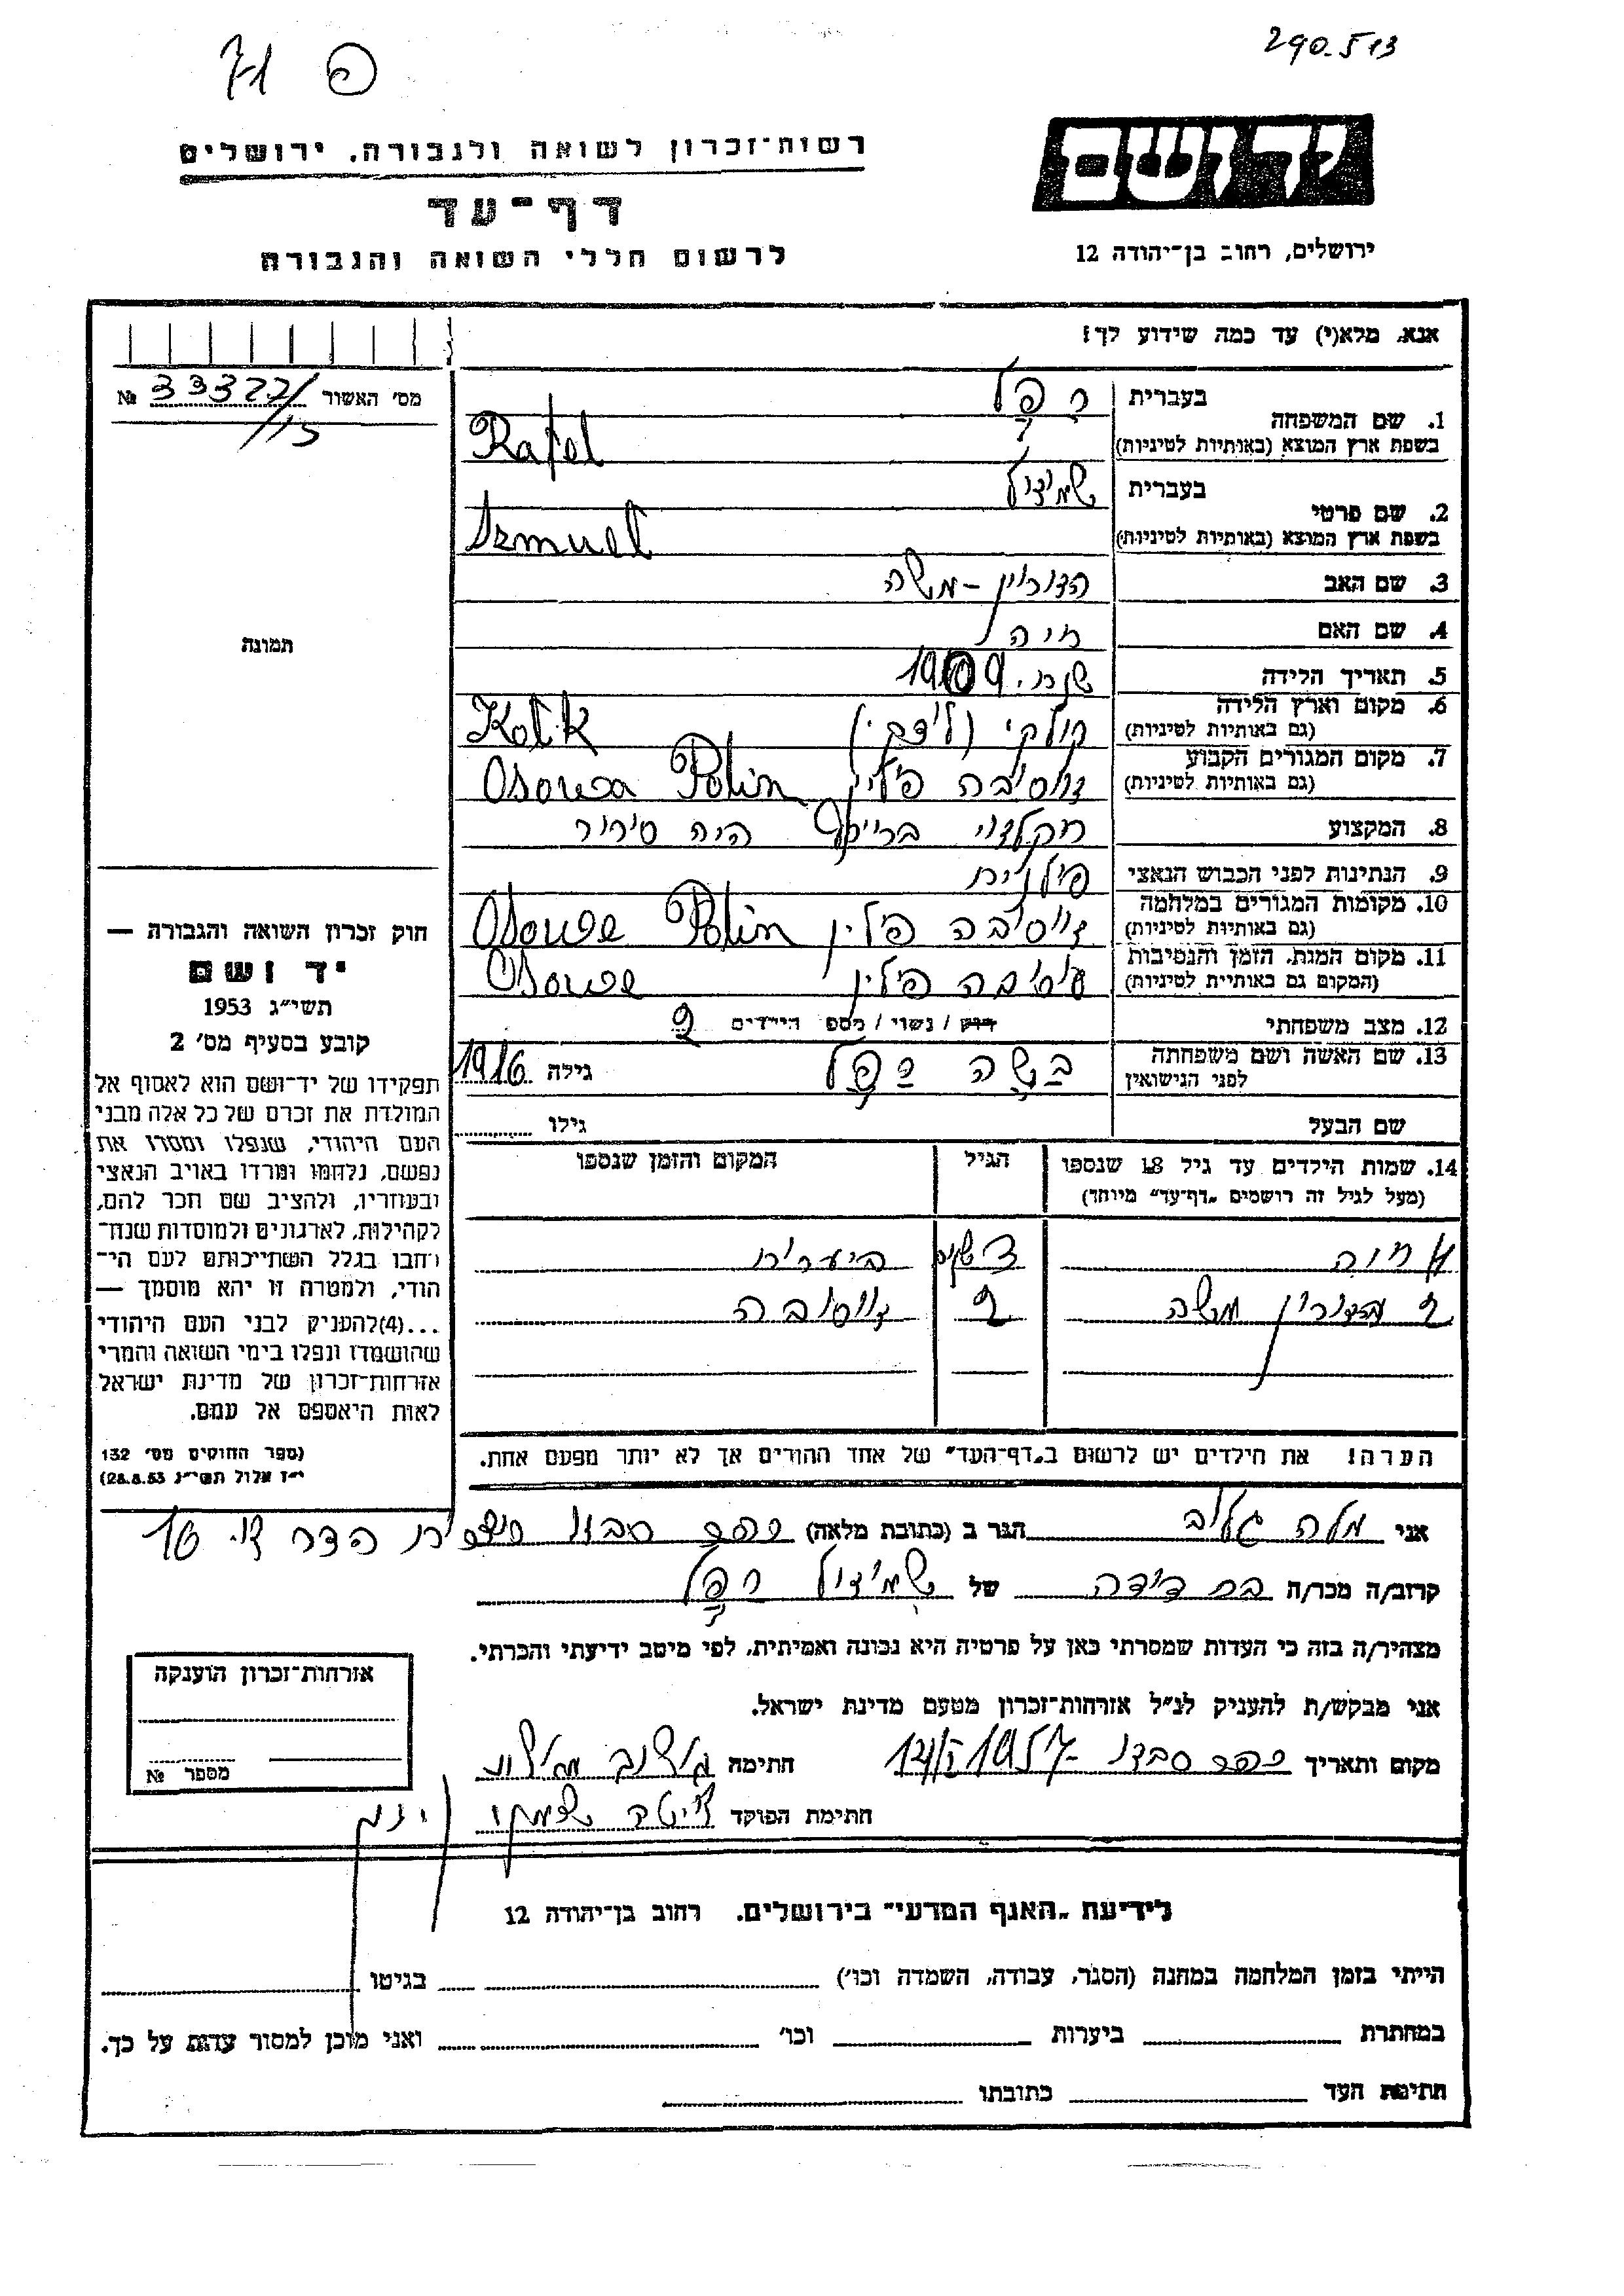 290.513
פ
יד ושם
רשות־זכרון לשואה ולגבורה, ירושלים
דף־עד
לרשום חללי השואה והגבורה
ירושלים, רחוב בן־יהודה 12
אנא, מלא(י) עד כמה שידוע לך!
מס׳ האשור 33322/ №
15
1. שם המשפחה
בעברית רפל
בשפת ארץ המוצא (באותיות לטיניות) Rafel
2. שם פרטי
בעברית שמואל
בשפת ארץ המוצא (באותיות לטיניות) Szmuel
3. שם האב אהרון - משה
4. שם האם חיה
5. תאריך הלידה שנת 1909
6. מקום וארץ הלידה קולקי Kolk
(גם באותיות לטיניות)
7. מקום המגורים הקבוע אוסובה פולין Osowa Polin
(גם באותיות לטיניות)
8. המקצוע חקלאי היה
9. הנתינות לפני הכבוש הנאצי פולנית
10. מקומות המגורים במלחמה אוסובה פולין Osowe Polin
(גם באותיות לטיניות)
11. מקום המות, הזמן והנסיבות אוסובה פולין Osowe
(המקום גם באותיות לטיניות)
12. מצב משפחתי רווק / נשוי / מספר הילדים 2
13. שם האשה ושם משפחתה בשה רפל גילה 1916
לפני הנישואין
שם הבעל גילו
14. שמות הילדים עד גיל 18 שנספו הגיל המקום והזמן שנספו
(מעל לגיל זה רושמים „דף־עד״ מיוחד)
חוה שנים ביערות
2 אהרון משה 2 אוסובה
הערה! את הילדים יש לרשום ב„דף־העד״ של אחד ההורים אך לא יותר מפעם אחת.
תמונה
חוק זכרון השואה והגבורה —
יד ושם
תשי״ג 1953
קובע בסעיף מס׳ 2
תפקידו של יד־ושם הוא לאסוף אל
המולדת את זכרם של כל אלה מבני
העם היהודי, שנפלו ומסרו את
נפשם, נלחמו ומרדו באויב הנאצי
ובעוזריו, ולהציב שם וזכר להם,
לקהילות, לארגונים ולמוסדות שנח־
רבו בגלל השתייכותם לעם הי־
הודי, ולמטרה זו יהא מוסמך —
...(4) להעניק לבני העם היהודי
שהושמדו ונפלו בימי השואה והמרי
אזרחות־זכרון של מדינת ישראל
לאות היאספם אל עמם.
(ספר החוקים מס׳ 132
י״ז אלול תשי״ג 28.8.53)
אני מלה גולוב הגר ב (כתובת מלאה) כפר סבא הדר 16
קרוב/ה מכר/ה בת דודה של שמואל רפל
מצהיר/ה בזה כי העדות שמסרתי כאן על פרטיה היא נכונה ואמיתית, לפי מיטב ידיעתי והכרתי.
אני מבקש/ת להעניק לנ״ל אזרחות־זכרון מטעם מדינת ישראל.
מקום ותאריך כפר סבא 1957 חתימה גולוב
חתימת הפוקד
אזרחות־זכרון הוענקה
מספר №
לידיעת „האגף המדעי״ בירושלים, רחוב בן־יהודה 12
הייתי בזמן המלחמה במחנה (הסגר, עבודה, השמדה וכו׳) בגיטו
במחתרת ביערות וכו׳ ואני מוכן למסור עדות על כך.
חתימת העד כתובתו